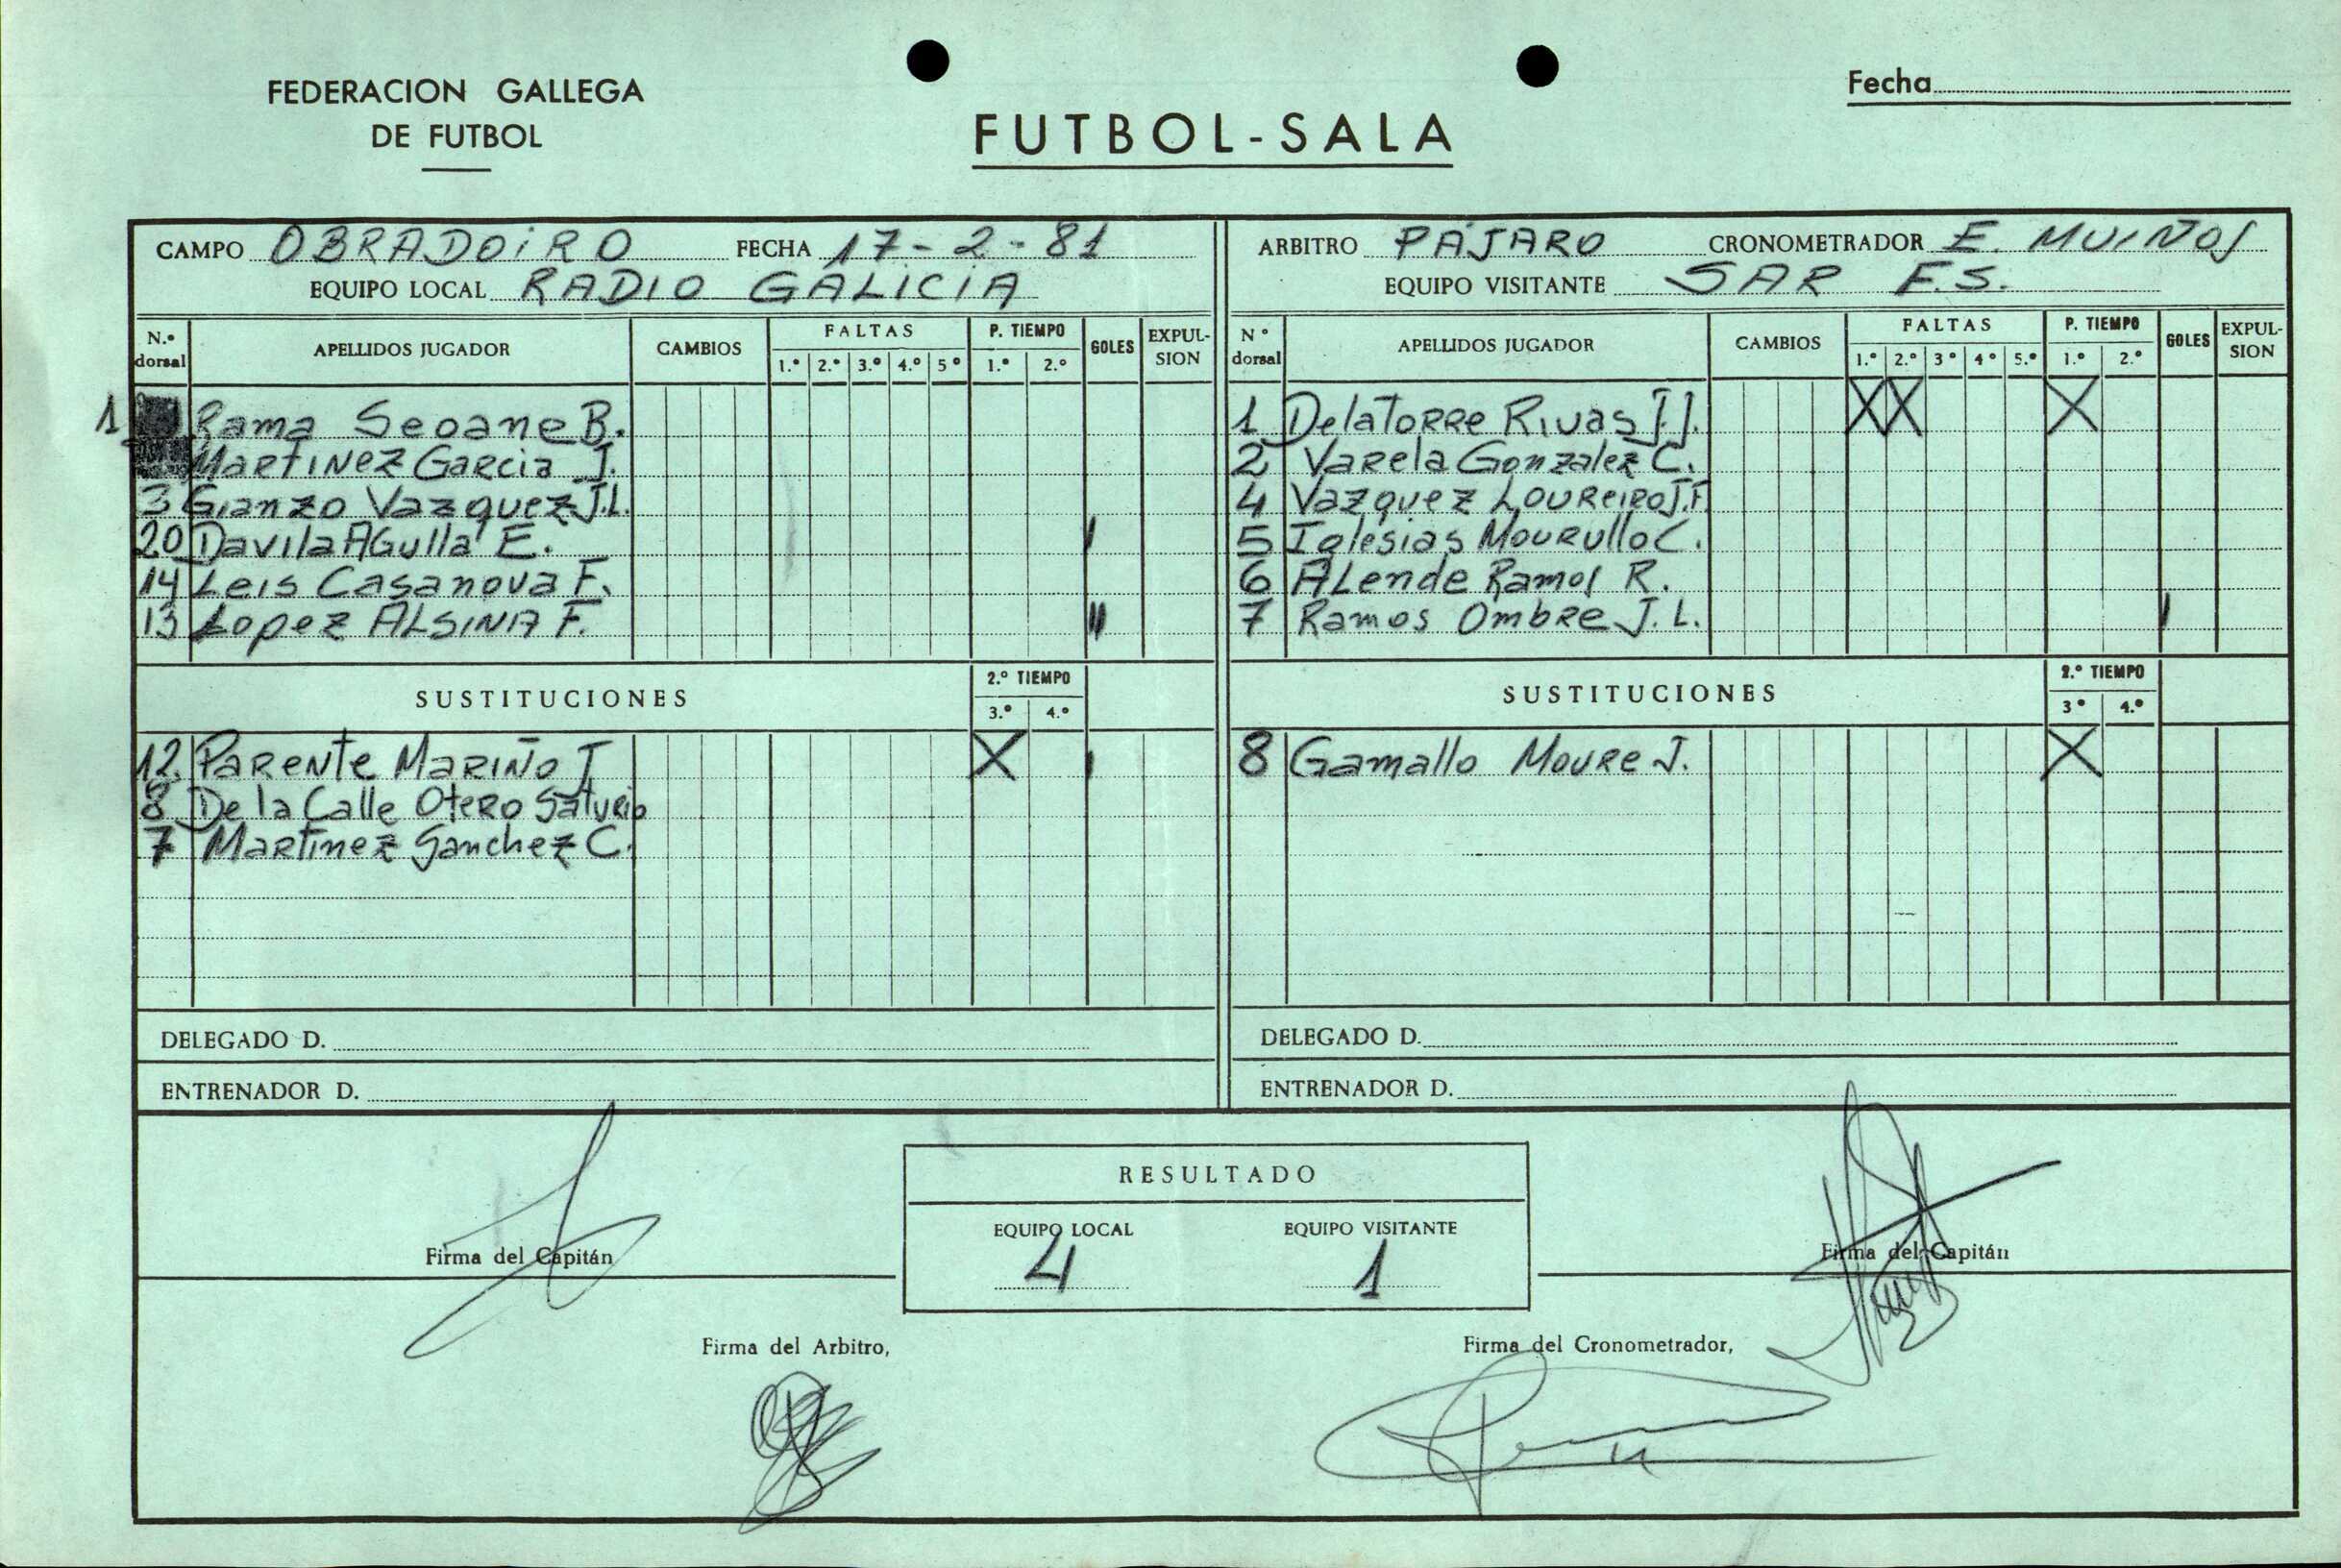 FEDERACION GALLEGA
DE FUTBOL
FUTBOL-SALA
Fecha
CAMPO OBRADOIRO FECHA 17-2-81
EQUIPO LOCAL RADIO GALICIA
N.º dorsal APELLIDOS JUGADOR CAMBIOS FALTAS 1.º 2.º 3.º 4.º 5º P. TIEMPO 1.º 2.º GOLES EXPULSION
1 Rama Seoane B.
Martinez Garcia J.
3 Gianzo Vazquez J.L.
20 Davila Agulla E. I
14 Leis Casanova F.
13 Lopez ALSINA F. II
SUSTITUCIONES 2.º TIEMPO 3.º 4.º
12 Parente Mariño J X I
8 De la Calle Otero Saturio
7 Martinez Sanchez C.
DELEGADO D.
ENTRENADOR D.
ARBITRO PAJARO CRONOMETRADOR E. MUIÑOS
EQUIPO VISITANTE SAR F.S.
N º dorsal APELLIDOS JUGADOR CAMBIOS FALTAS 1.º 2.º 3º 4º 5.º P. TIEMPO 1.º 2.º GOLES EXPULSION
1 DelaTorre Rivas J.J. X X X
2 Varela Gonzalez C.
4 Vazquez Loureiro J.F.
5 Iglesias Mourullo C.
6 ALende Ramos R.
7 Ramos Ombre J.L. I
SUSTITUCIONES 2.º TIEMPO 3º 4.º
8 Gamallo Moure J. X
DELEGADO D.
ENTRENADOR D.
RESULTADO
EQUIPO LOCAL EQUIPO VISITANTE
4 1
Firma del Capitán
Firma del Capitán
Firma del Arbitro,
Firma del Cronometrador,